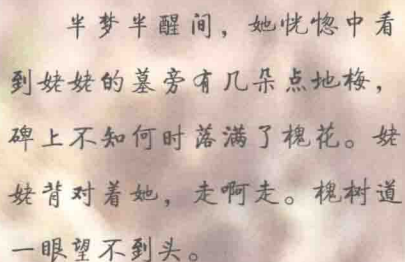 半梦半醒间，她恍惚中看
到姥姥的墓旁有几朵点地梅，
碑上不知何时落满了槐花。姥
姥背对着她，走啊走。槐树道
一眼望不到头。